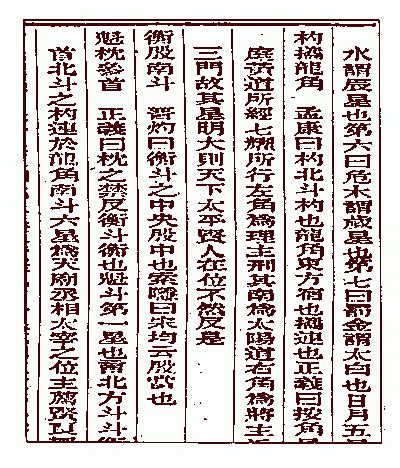 水謂辰星也第六曰危木謂歲星也第七曰罰金謂太白也日月五星
杓攜龍角 孟康曰杓北斗杓也龍角東方宿也攜連也正義曰按角星
庭黃道所經七耀所行左角爲理主刑其南爲太陽道右角爲將主
三門故其星明大則天下太平賢人在位不然反是
衡殷南斗 晉灼曰衡斗之中央殷中也索隱曰宋均云殷當也
魁枕參首 正義曰枕之禁反衡斗衡也魁斗第一星也言北方斗斗衡
首北斗之杓連於龍角南斗六星爲天廟丞相太宰之位主薦賢良